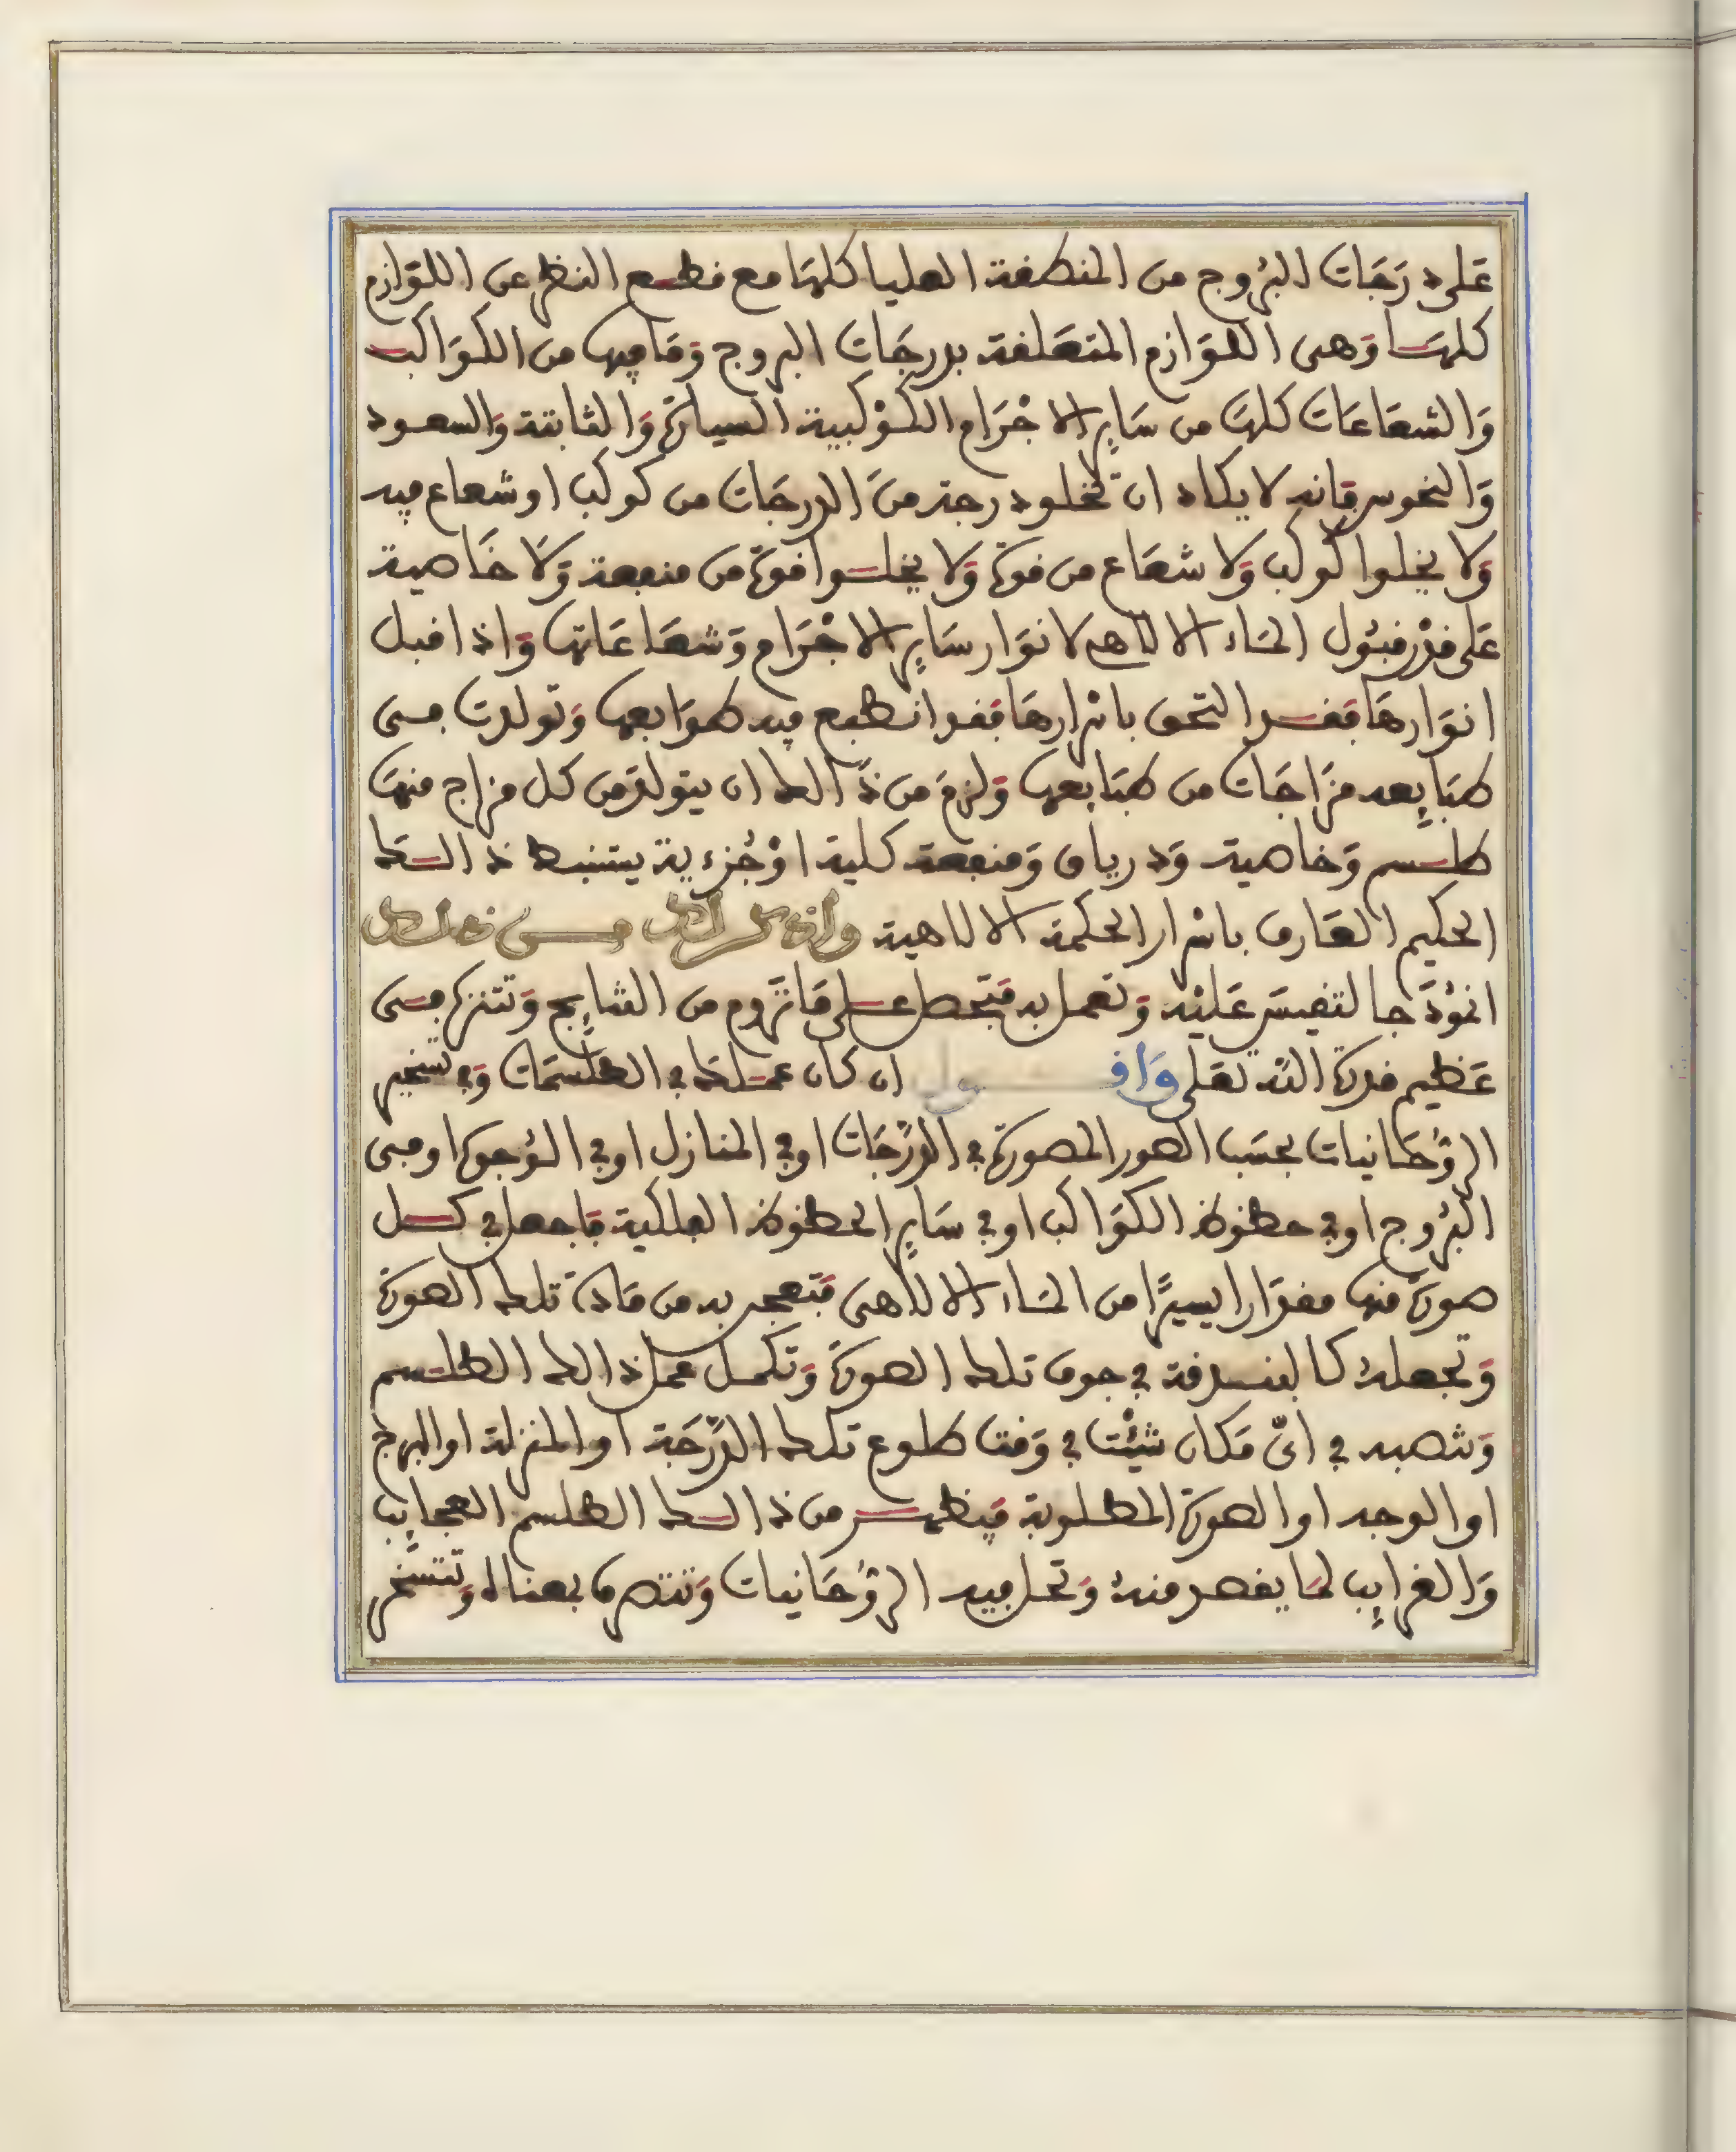 عَلى دَرَجَات البُرُوج من المنطقة العليا كلهَا مع قطع النظر عن اللوَازم
كلهَا وَهى اللوَازم المتعَلقة بدرجَات البروج وَمَا فيها من الكوَاكب
وَالشعَاعَات كلهَا من سَاير الاجْرَام الكوْكبية السيارة وَالثابتة وَالسعود
وَالنحوس فانه لا يكاد ان تخلو درجة منَ الدرجَات من كوكب او شعاع فيه
وَلا يخلوا كوكب وَلا شعَاع من قوة وَلا يخلوا قوة من منفعة وَلا خَاصية
عَلى قدْر قبُول المَاء الالاهى لانوَار سَاير الاجْرَام وَشعَاعَاتها وَاذا قبل
انوَارهَا فقد التحق باسْرارهَا فقد انطبع فيه طوَابعها وَتولدت فى
طبَايعه مزَاجَات من طبَايعها وَلزمَ من ذَالك ان يتولدَ من كل مزاج منهَا
طلسم وَخاصية وَدرياق وَمنفعة كلية اوْ جُزءية يستنبط ذالك
الحكيم العَارف باسْرار الحكمة الالاهية وأذكر لك فى ذالك
انموْذَجا لتقيسَ عَليْه وَتعمل به فتَحصل على مَا تَرُوم من النتايج وَتتنزه فى
عَظيم قدرة الله تعَلى وَاقول ان كان عملك فى الطلسمَات وَفى تسْخير
الروُحَانيات بحسَب الصور المصورة فى الدرَجَات او فى المنازل او فى الوُجوه او فى
البُرُوج او فى حظوظ الكوَاكب او فى سَاير الحظوظ الفلكية فاجعل فى كل
صورة منها مقدَارا يسيرًا من المَاء الالاهى فتَعجن به من مَادة تلك الصورَة
وَتجعلهُ كالبندقة فى جوف تلك الصورَة وَتكمل عمل ذالك الطلسم
وَتنصبه فى اىّ مَكان شيْت فى وَقت طلوع تلك الدرَجَة او المنزلة او البرج
او الوجه او الصورة المطلوبة فيَظهر من ذالك الطلسم العجايب
وَالغرايب لمَا يقصد منهُ وَتحل فيه الروُحَانيات وَتتصرف بعناه وَتتسَخر